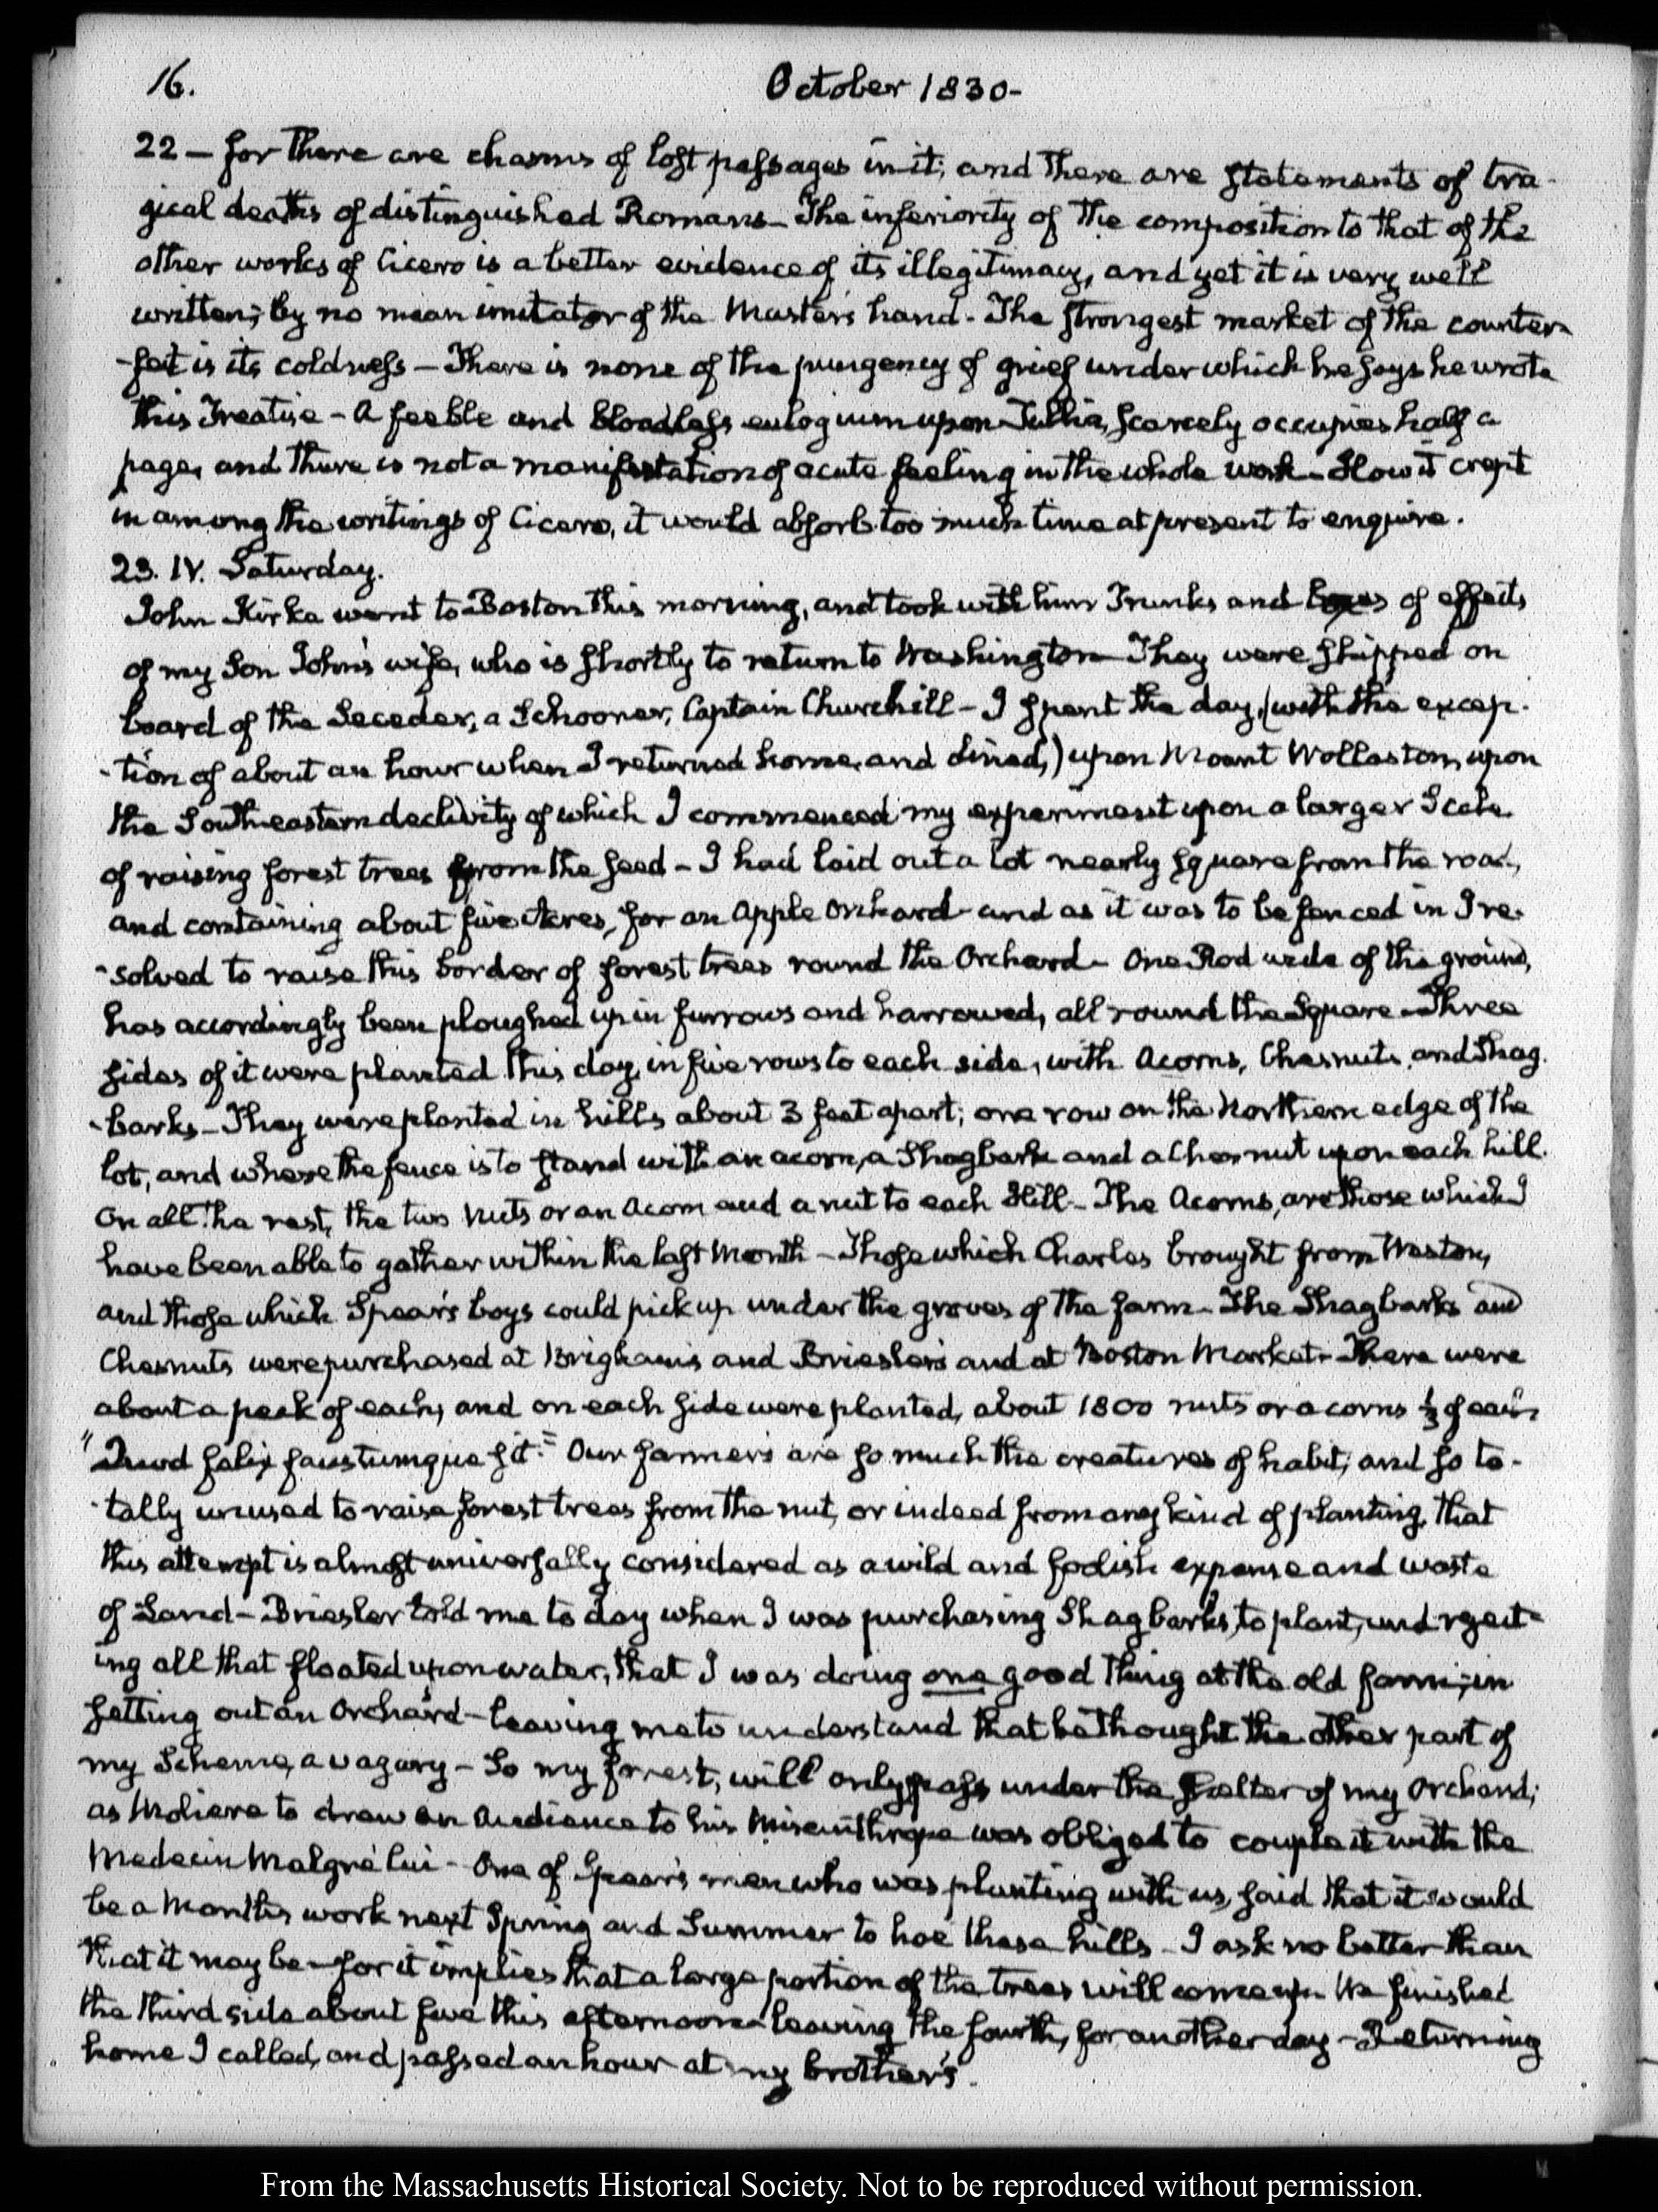 16.
October 1830-
22 — for there are chasms of lost passages in it; and there are statements of tra-
gical deaths of distinguished Romans — The inferiority of the composition to that of the
other works of Cicero is a better evidence of its illegitimacy, and yet it is very well
written; by no mean imitator of the Master's hand - The strongest market of the counter-
-feit is its coldness — There is none of the pungency of grief under which he says he wrote
this Treatise - A feeble and bloodless eulogium upon Tullia, scarcely occupies half a
page, and there is not a manifestation of acute feeling in the whole work - How it crept
in among the writings of Cicero, it would absorb too much time at present to enquire.
23. IV. Saturday.
John Kirke went to Boston this morning, and took with him Trunks and boxes of effects
of my Son John's wife, who is shortly to return to Washington — They were shipped on
board of the Seceder, a Schooner, Captain Churchill - I spent the day, (with the excep-
-tion of about an hour when I returned home, and dined,) upon Mount Wollaston, upon
the South-eastern declivity of which I commenced my experiment upon a larger Scale
of raising forest trees from the seed - I had laid out a lot nearly square from the road,
and containing about five Acres, for an Apple Orchard - and as it was to be fenced in I re-
-solved to raise this border of forest trees round the Orchard - One Rod wide of the ground,
has accordingly been ploughed up in furrows and harrowed, all round the Square - Three
sides of it were planted this day, in five rows to each side, with Acorns, Chesnuts, and Shag-
-barks - They were planted in hills about 3 feet apart; one row on the Northern edge of the
lot, and where the fence is to stand with an acorn, a Shagbark and a Chesnut upon each hill.
On all the rest, the two Nuts or an Acorn and a nut to each Hill - The Acorns, are those which I
have been able to gather within the last Month - Those which Charles brought from Weston,
and those which Spear's boys could pick up under the groves of the farm - The Shagbarks and
Chesnuts were purchased at Brigham's and Briesler's and at Boston Market - There were
about a peck of each, and on each side were planted, about 1800 nuts or acorns ⅓ of each
"Quod felix faustumque sit." Our farmers are so much the creatures of habit, and so to-
-tally unused to raise forest trees from the nut, or indeed from any kind of planting, that
this attempt is almost universally considered as a wild and foolish expense and waste
of Land - Briesler told me to day when I was purchasing Shagbarks, to plant, and reject-
ing all that floated upon water, that I was doing one good thing at the old farm; in
setting out an Orchard - leaving me to understand that he thought the other part of
my Scheme, a vagary - So my forest, will only pass under the shelter of my Orchard;
as Moliere to draw an Audience to his Misanthrope was obliged to couple it with the
Medecin Malgré lui - One of Spear's men who was planting with us, said that it would
be a Month's work next Spring and Summer to hoe these hills - I ask no better than
that it may be - for it implies that a large portion of the trees will come up - We finished
the third side about five this afternoon - leaving the fourth, for another day - Returning
home I called, and passed an hour at my brother's.
From the Massachusetts Historical Society. Not to be reproduced without permission.